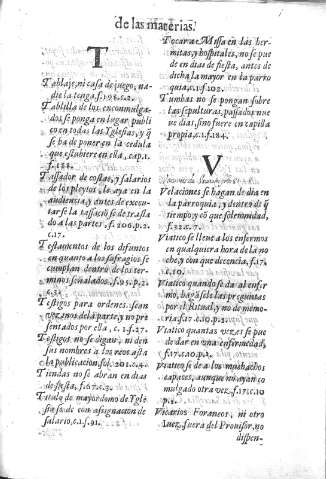 de las materias.
T
Tablaje, ni casa de juego, na-
die la tenga, f.108.c.2.
Tablilla de los excomulga-
dos, se ponga en lugar publi
co en todas las Yglesias, y q̃
se ha de poner en la cedula
que estubiere en ella, cap.1.
f.122.
Tassador de costas, y salarios
de los pleytos, le aya en la
audiencia, y antes de execu-
tarse la tassacion se de trasla
do a las partes, f. 200. p.2.
c.17.
Testamentos de los difuntos
en quanto a los sufragios se
cumplan dentro de los ter-
minos señalados, f.95. p.2.
Testigos para ordenes, sean
vezinos de la parte, y no pre
sentados por ella, c.1. f.27.
Testigos no se digan, ni den
sus nombres a los reos asta
la publicacion, fol. 201. c.4.
Tiendas no se abran en dias
de fiesta, f.67. c.3.
Titulo de mayordomo de Ygle
sia se dè con asignacion de
salario, c.1. f.91.
Tocar a Missa en las her-
mitas, y hospitales, no se pue
de en dias de fiesta, antes de
dicha la mayor en la parro
quia, c.1. f.102.
Tumbas no se pongan sobre
las sepulturas, passados nue
ue dias, sino fuere en capilla
propia, c.1. f.184.
V
Velaciones se hagan de dia en
la parroquia, y dentro de q̃
tiempo y cõ que solemnidad,
f.32. c.7.
Viatico se lleue a los enfermos
en qualquiera hora de la no
che, y con que decencia, f.17.
c.10.
Viatico quando se da al enfer
mo, hagãsele las preguntas
por el Ritual, y no de memo-
ria, f.17. c.10. p.2.
Viatico quantas vezes se pue
de dar en una enfermedad,
f.17. c.10. p.2.
Viatico se de a los muchachos
capaces, aunque no ayan co
mulgado otra vez, f.17. c.10
p.2.
Vicarios Foraneos, ni otro
Juez, fuera del Prouisor, no
dispen-